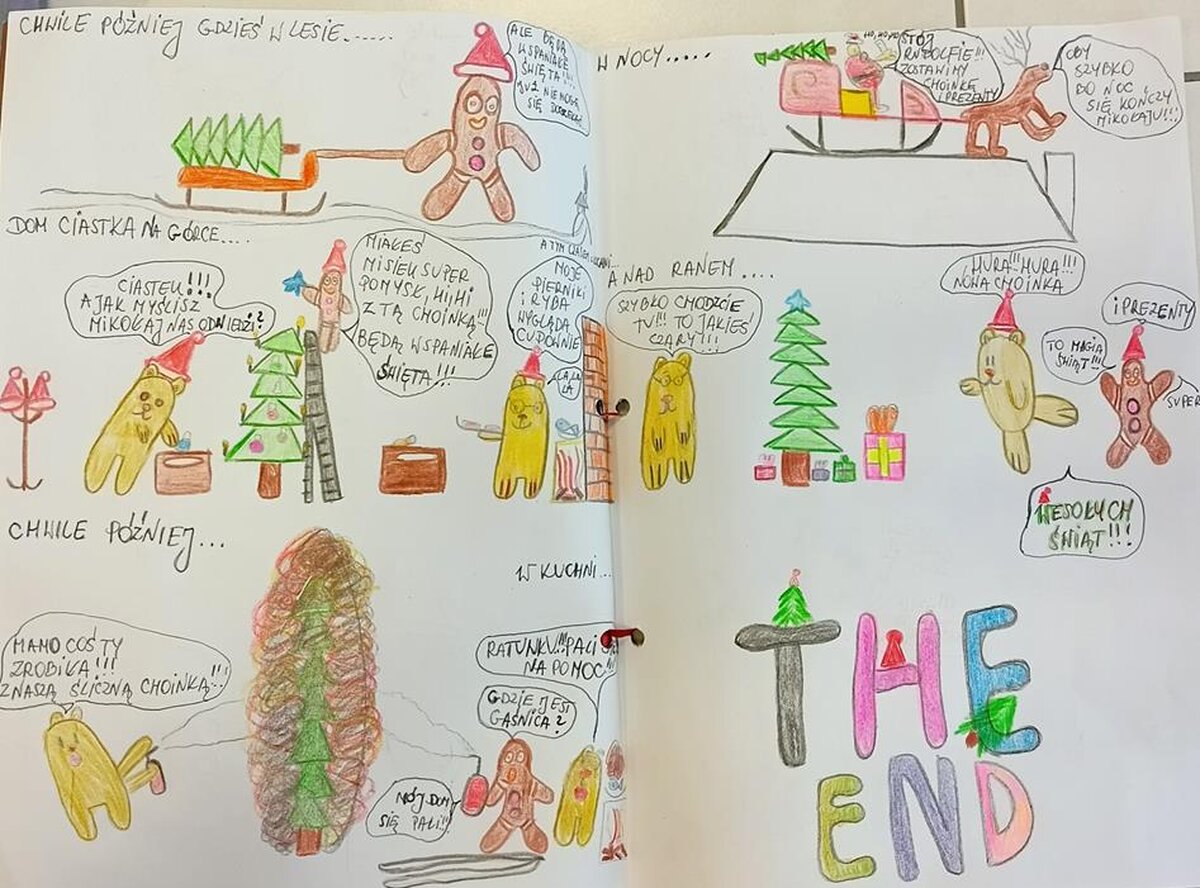 CHWILE PÓŹNIEJ GDZIEŚ W LESIE......
ALE BĘDĄ
WSPANIAŁE
ŚWIĘTA!!!
JUŻ NIE MOGĘ
SIĘ DOCZEKAĆ
DOM CIASTKA NA GÓRCE....
CIASTEK!!!
A JAK MYŚLISZ
MIKOŁAJ NAS ODWIEDZI?
MIAŁEŚ
MISIEK SUPER
POMYSŁ, HIHI
Z TĄ CHOINKĄ!!!
BĘDĄ WSPANIAŁE
ŚWIĘTA!!!
A TYM CZASEM W KUCHNI...
MOJE
PIERNIKI
I RYBA
WYGLĄDA
CUDOWNIE
LA LA
LA
CHWILE PÓŹNIEJ...
MAMO COŚ TY
ZROBIŁA!!!
Z NASZĄ ŚLICZNĄ CHOINKĄ!!!
W KUCHNI...
RATUNKU!!! PALI SIĘ
NA POMOC!!!
GDZIE JEST
GAŚNICA?
MÓJ DOM
SIĘ PALI!!!
W NOCY.....
HO, HO, HO
STÓJ
RUDOLFIE!!!
ZOSTAWIMY
CHOINKĘ
I PREZENTY
OBY
SZYBKO
DO NOC
SIĘ KOŃCZY
MIKOŁAJU!!!
A NAD RANEM....
SZYBKO CHODZCIE
TU!!! TO JAKIEŚ
CZARY!!!
HURA!! HURA!!!
NOWA CHOINKA
I PREZENTY
TO MAGIA
ŚWIĄT!!!
SUPER
WESOŁYCH
ŚWIĄT!!!
THE
END